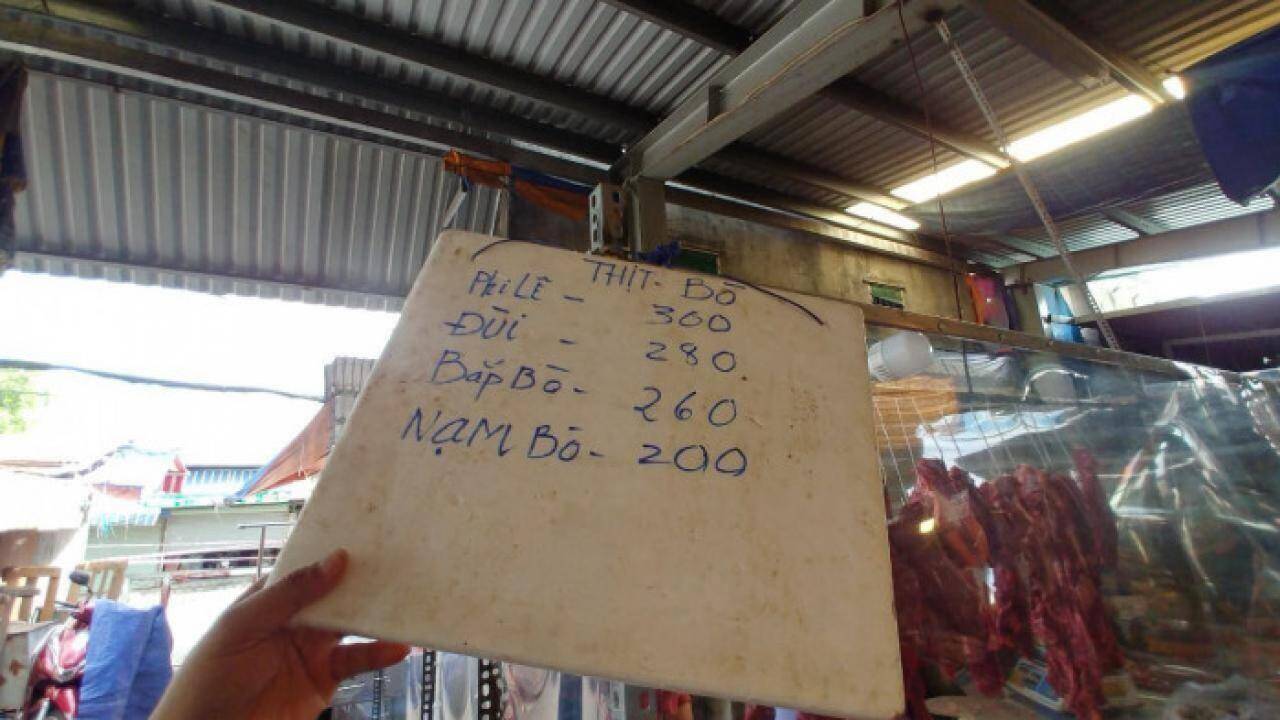 THỊT- BÒ
Phi LÊ - 300
ĐÙI - 280
Bắp Bò - 260
NẠM Bò - 200